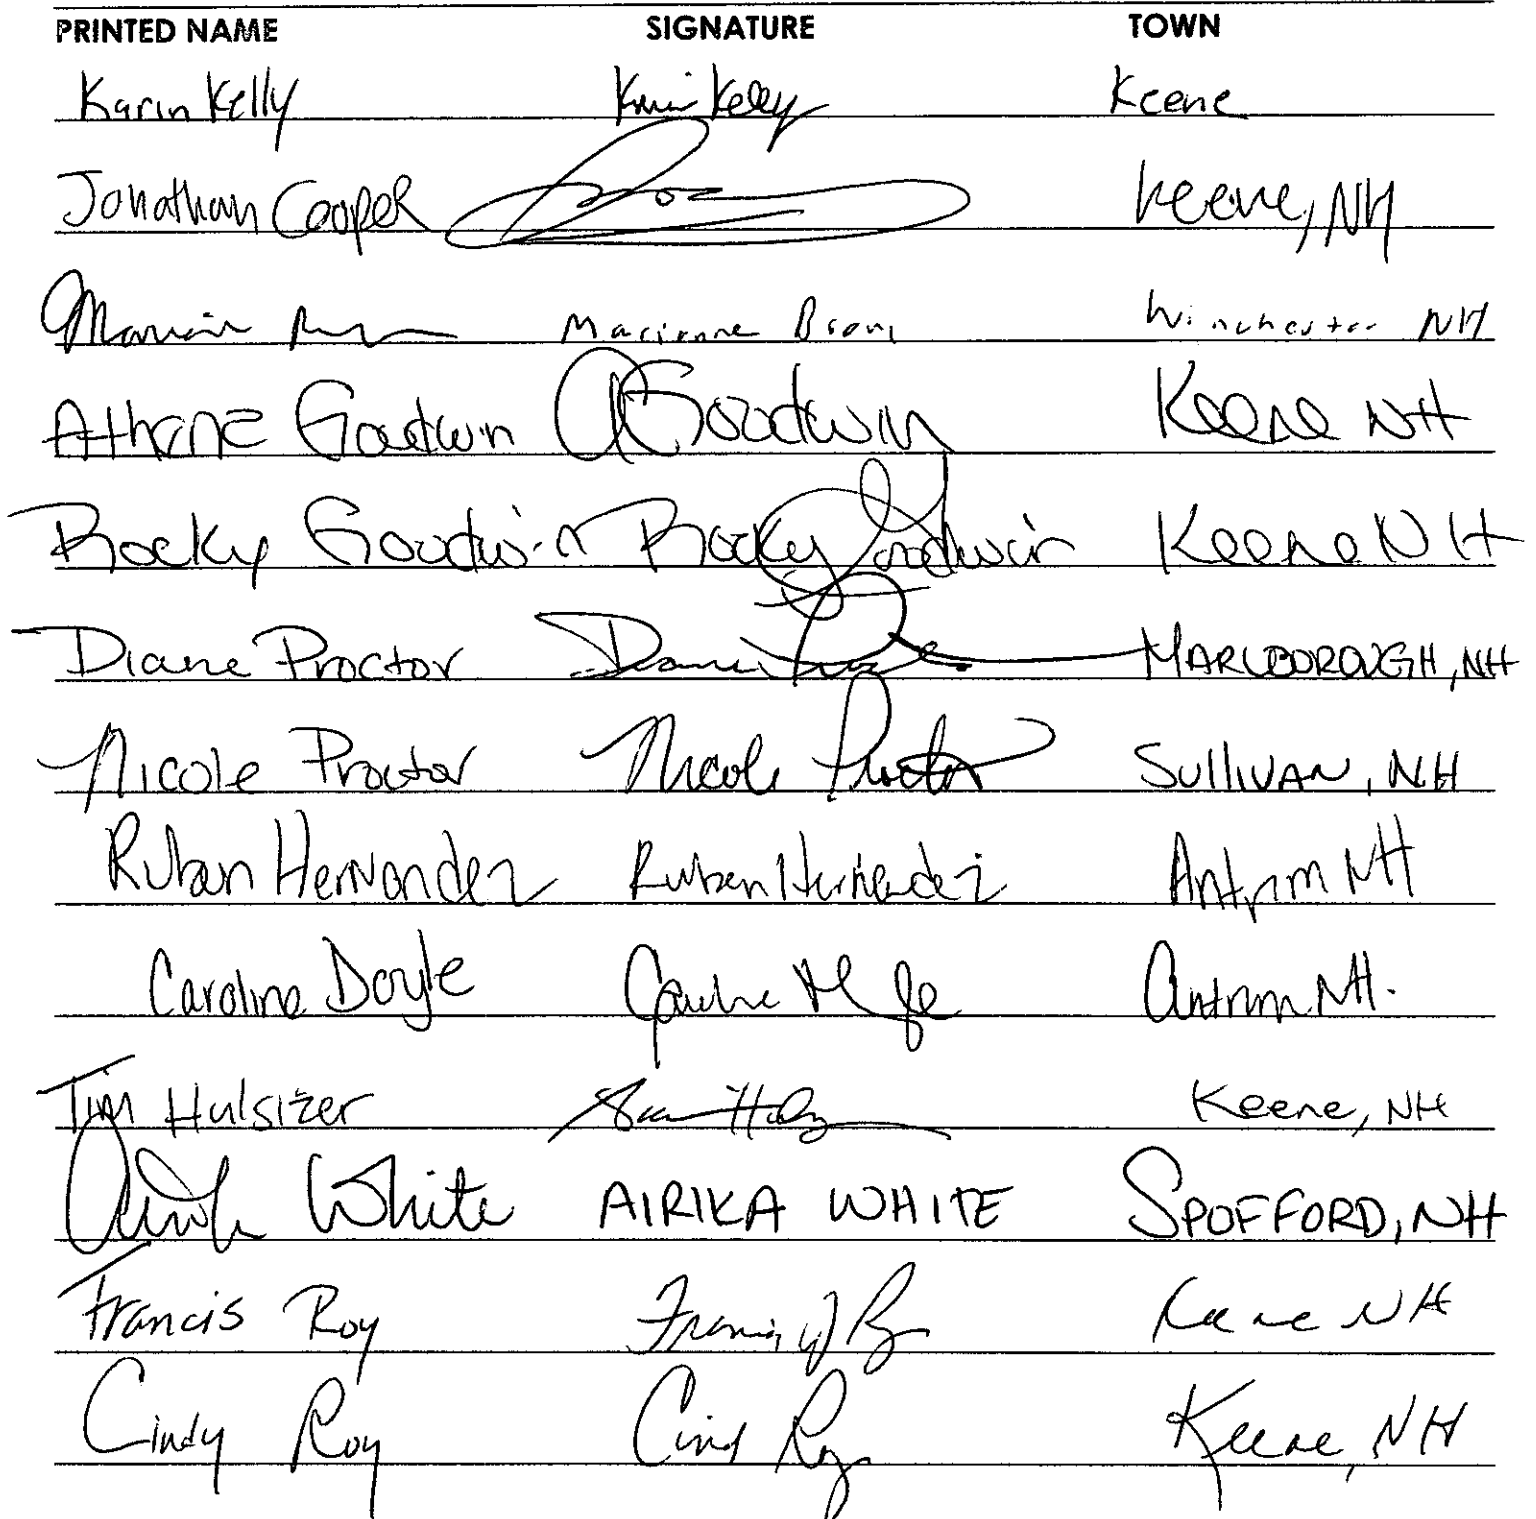 PRINTED NAME SIGNATURE TOWN
Karin Kelly Karin Kelly Keene
Jonathan Cooper Keene, NH
Marianne Winchester NH
Athene Goodwin A Goodwin Keene NH
Rocky Goodwin Rocky Goodwin Keene NH
Diane Proctor Diane MARLBOROUGH, NH
Nicole Proctor Nicole Proctor SULLIVAN, NH
Ruben Hernandez Ruben Hernandez Antrim NH
Caroline Doyle Antrim NH.
Tim Hulsizer Keene, NH
White AIRIKA WHITE SPOFFORD, NH
Francis Roy Francis J Roy Keene NH
Cindy Roy Cindy Roy Keene, NH